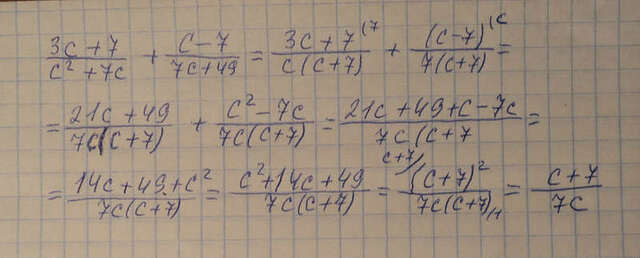 (3c+7)/(c²+7c) + (c-7)/(7c+49) = (3c+7)/(c(c+7)) (7 + (c-7)/(7(c+7)) (c =
= (21c+49)/(7c(c+7)) + (c²-7c)/(7c(c+7)) = (21c+49+c-7c)/(7c(c+7 =
= (14c+49+c²)/(7c(c+7)) = (c²+14c+49)/(7c(c+7)) = c+7 (c+7)²/(7c(c+7)) /1 = (c+7)/(7c)